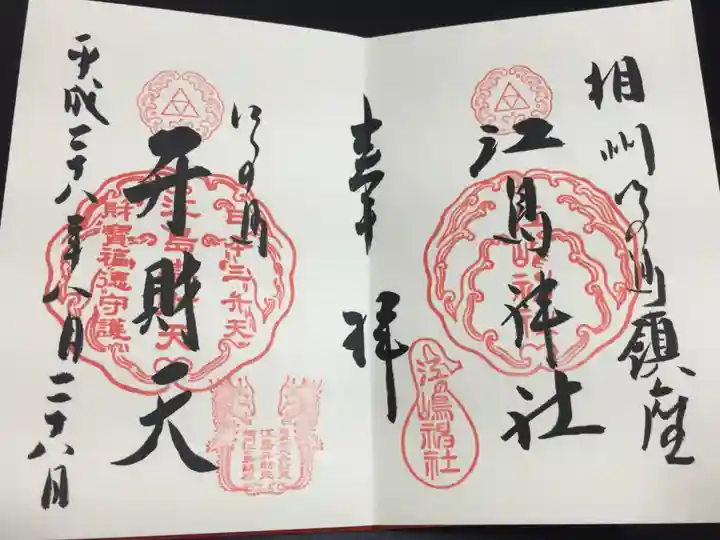 相州江の島鎮座
江島神社
奉拝
江嶋神社
江の島
弁財天
平成二十八年八月二十八日
日本三弁天
財寶福徳守護